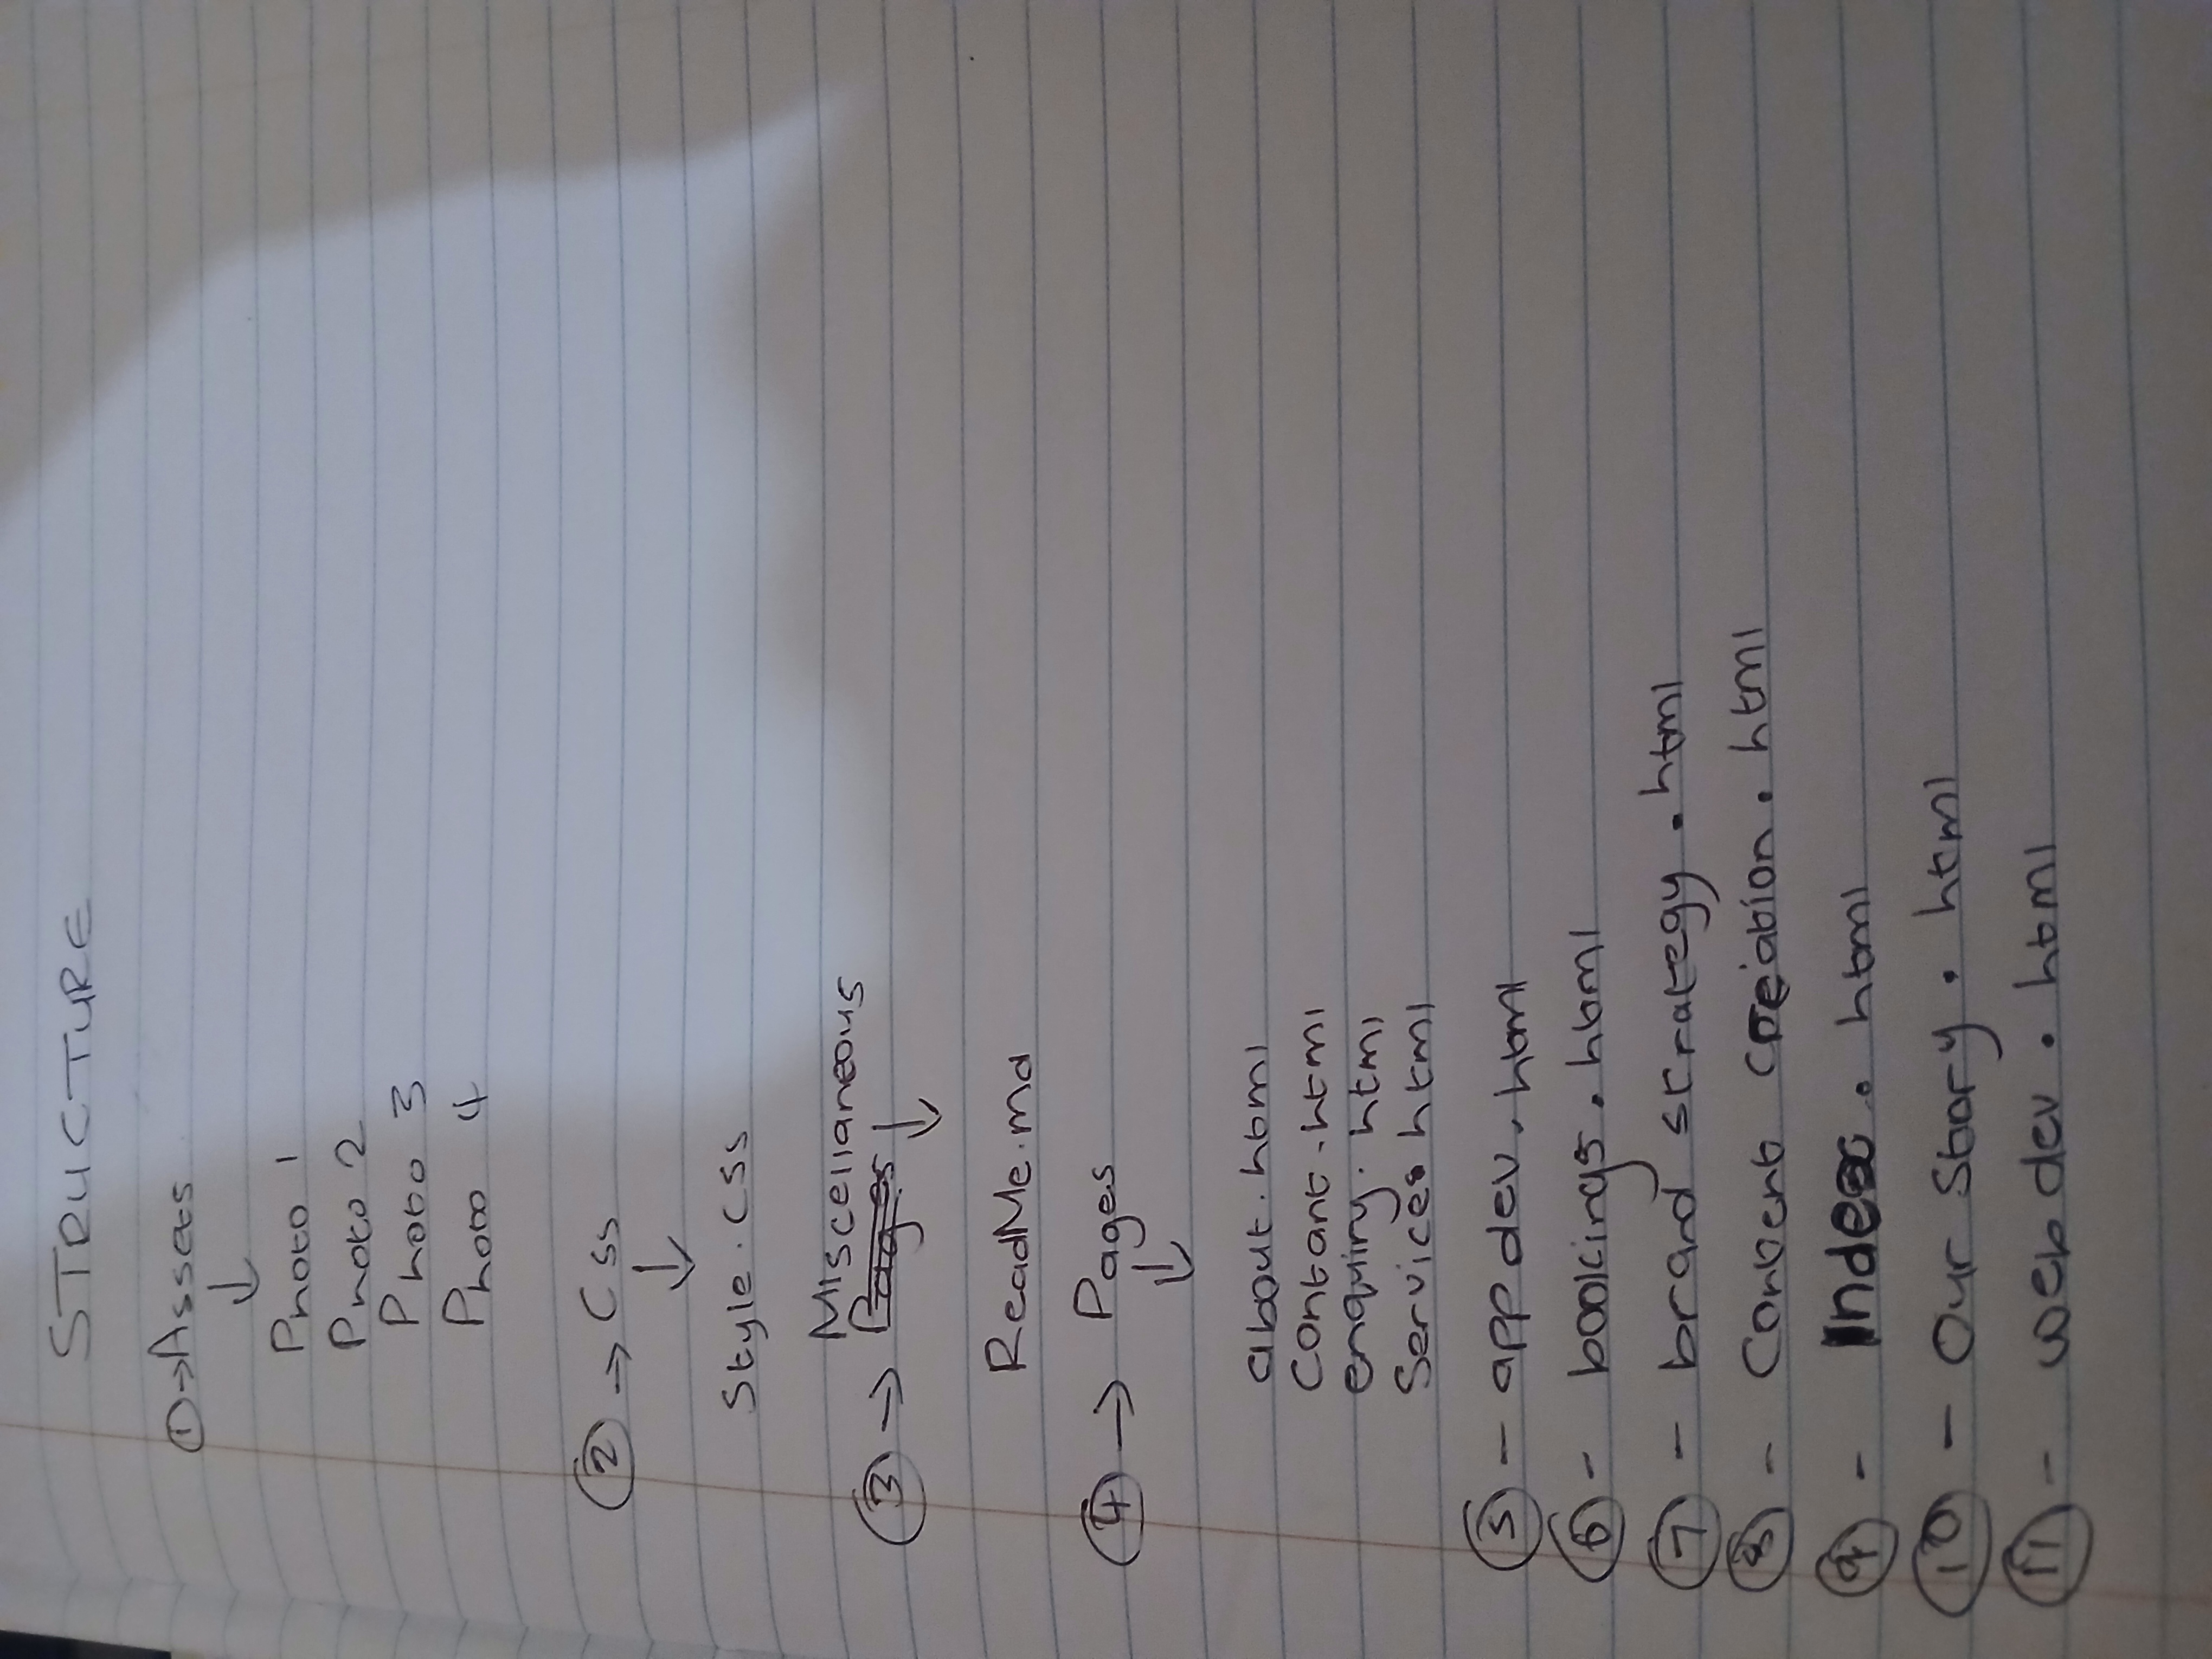 STRUCTURE
① → Assets
↓
Photo 1
Photo 2
Photo 3
Photo 4
② → Css
↓
Style.css
Miscellaneous
③ → Pages ↓
ReadMe.md
④ → Pages
↓
about.html
Contant.html
enquiry.html
Services.html
⑤ - app dev.html
⑥ - bookings.html
⑦ - brand strategy.html
⑧ - Content Creation.html
⑨ - Index.html
⑩ - Our Story.html
⑪ - web dev.html